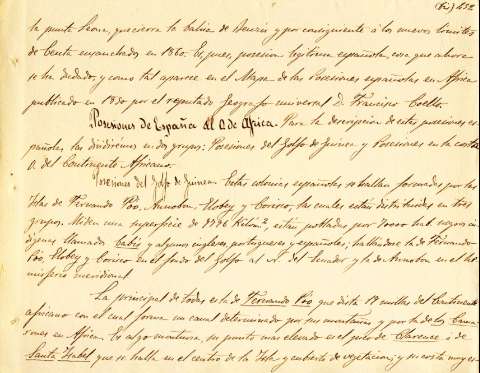 la punta Leona, que cierra la bahia de Benzú y por consiguiente á los nuevos limites
de Ceuta ensanchados en 1860. Es, pues, posesion legitima española, cosa que ahora
se ha dudado, y como tal aparece en el Mapa de las Posesiones españolas en Africa
publicado en 18 por el reputado geografo universal D. Francisco Coello.
Posesiones de España al O. de Africa. Para la descripcion de estas posesiones es-
pañolas las dividiremos en dos grupos: Posesiones del Golfo de Guinea y Posesiones en la costa
O. del Continente Africano.
Posesiones del Golfo de Guinea. Estas colonias españolas se hallan formadas por las
Islas de Fernando Póo, Annobon, Elobey y Corisco, las cuales están distribuidas en tres
grupos. Miden una superficie de Kilóm.², están pobladas por hab. negros in-
digenas llamados bubis y algunos ingleses, portugueses y españoles, hallandose la de Fernando
Póo, Elobey y Corisco en el fondo del Golfo al N. del Ecuador y la de Annobon en el he-
misferio meridional.
La principal de todas es la de Fernando Póo que dista millas del Continente
africano con el cual forma un canal determinado por sus montañas y por la de los Cama-
rones en Africa. Es algo montuosa, su punto mas elevado en el pico de Clarence ó de
Santa Isabel que se halla en el centro de la Isla y cubierto de vegetacion; y su costa muy es-